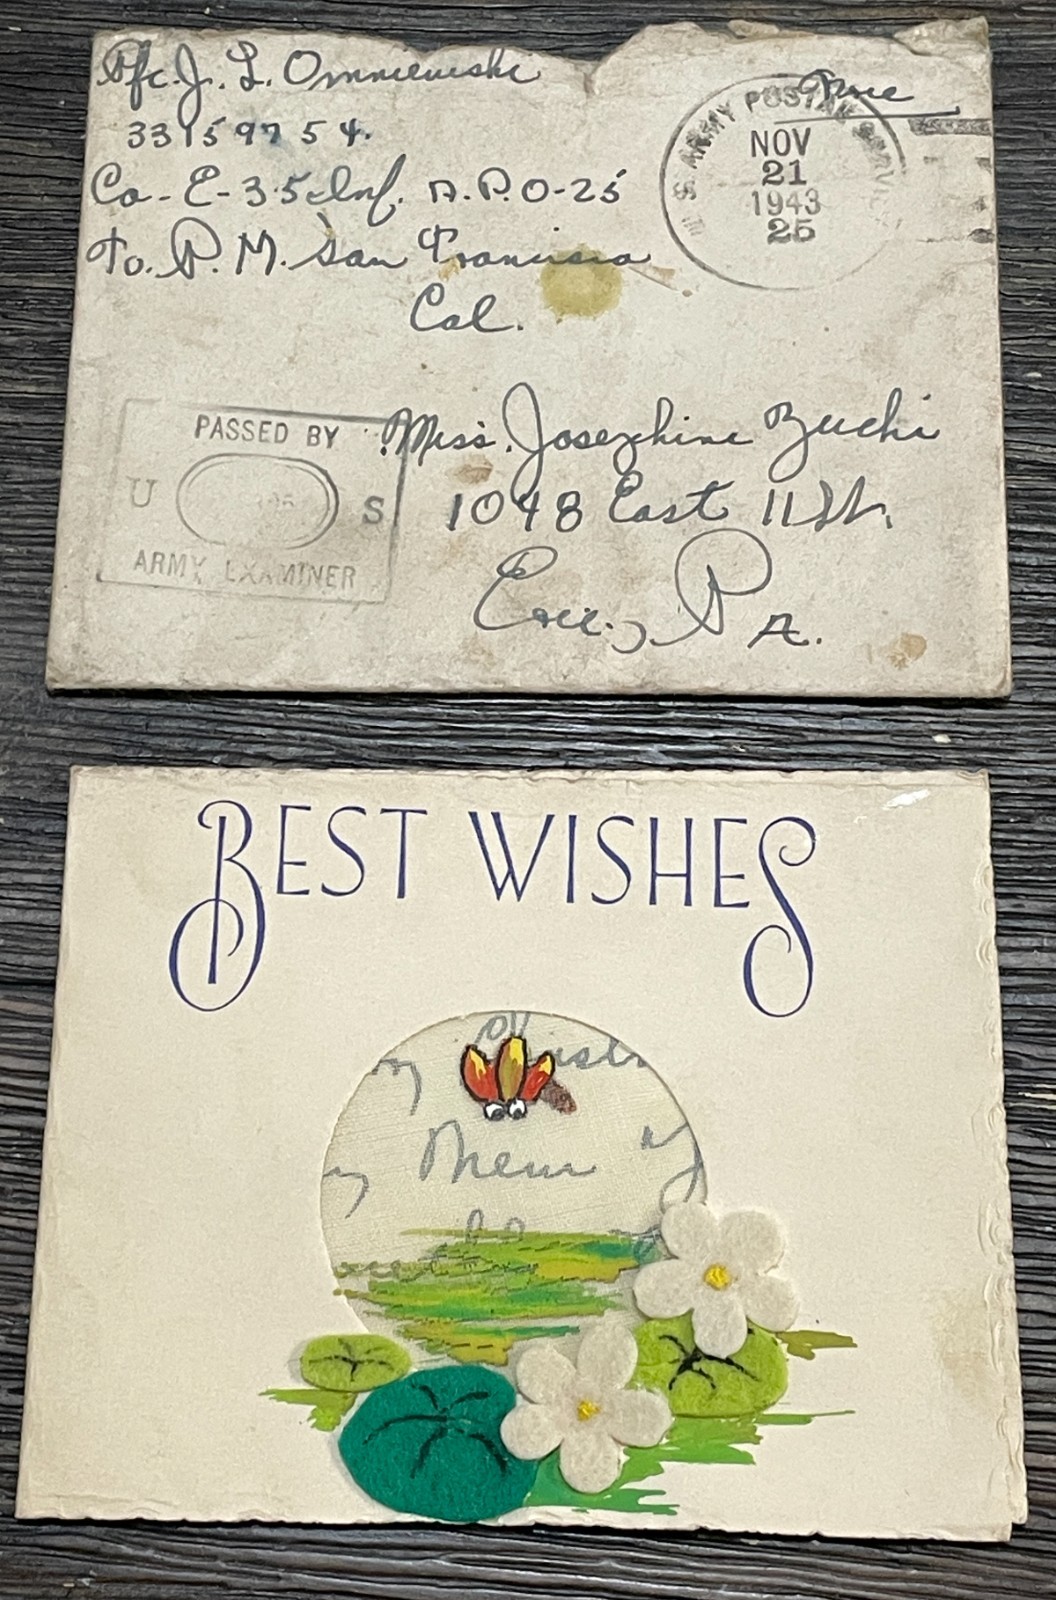 Pfc. J. L. Omniewski
33159754.
Co-E-35 Inf. A.P.O-25
To. P.M. San Francisco
Cal.
Free
U.S. ARMY POSTAL SERVICE
NOV
21
1943
25
PASSED BY
U S
ARMY EXAMINER
Miss. Josephine Zuchi
1048 East 11 St.
Erie, PA.
BEST WISHES
New